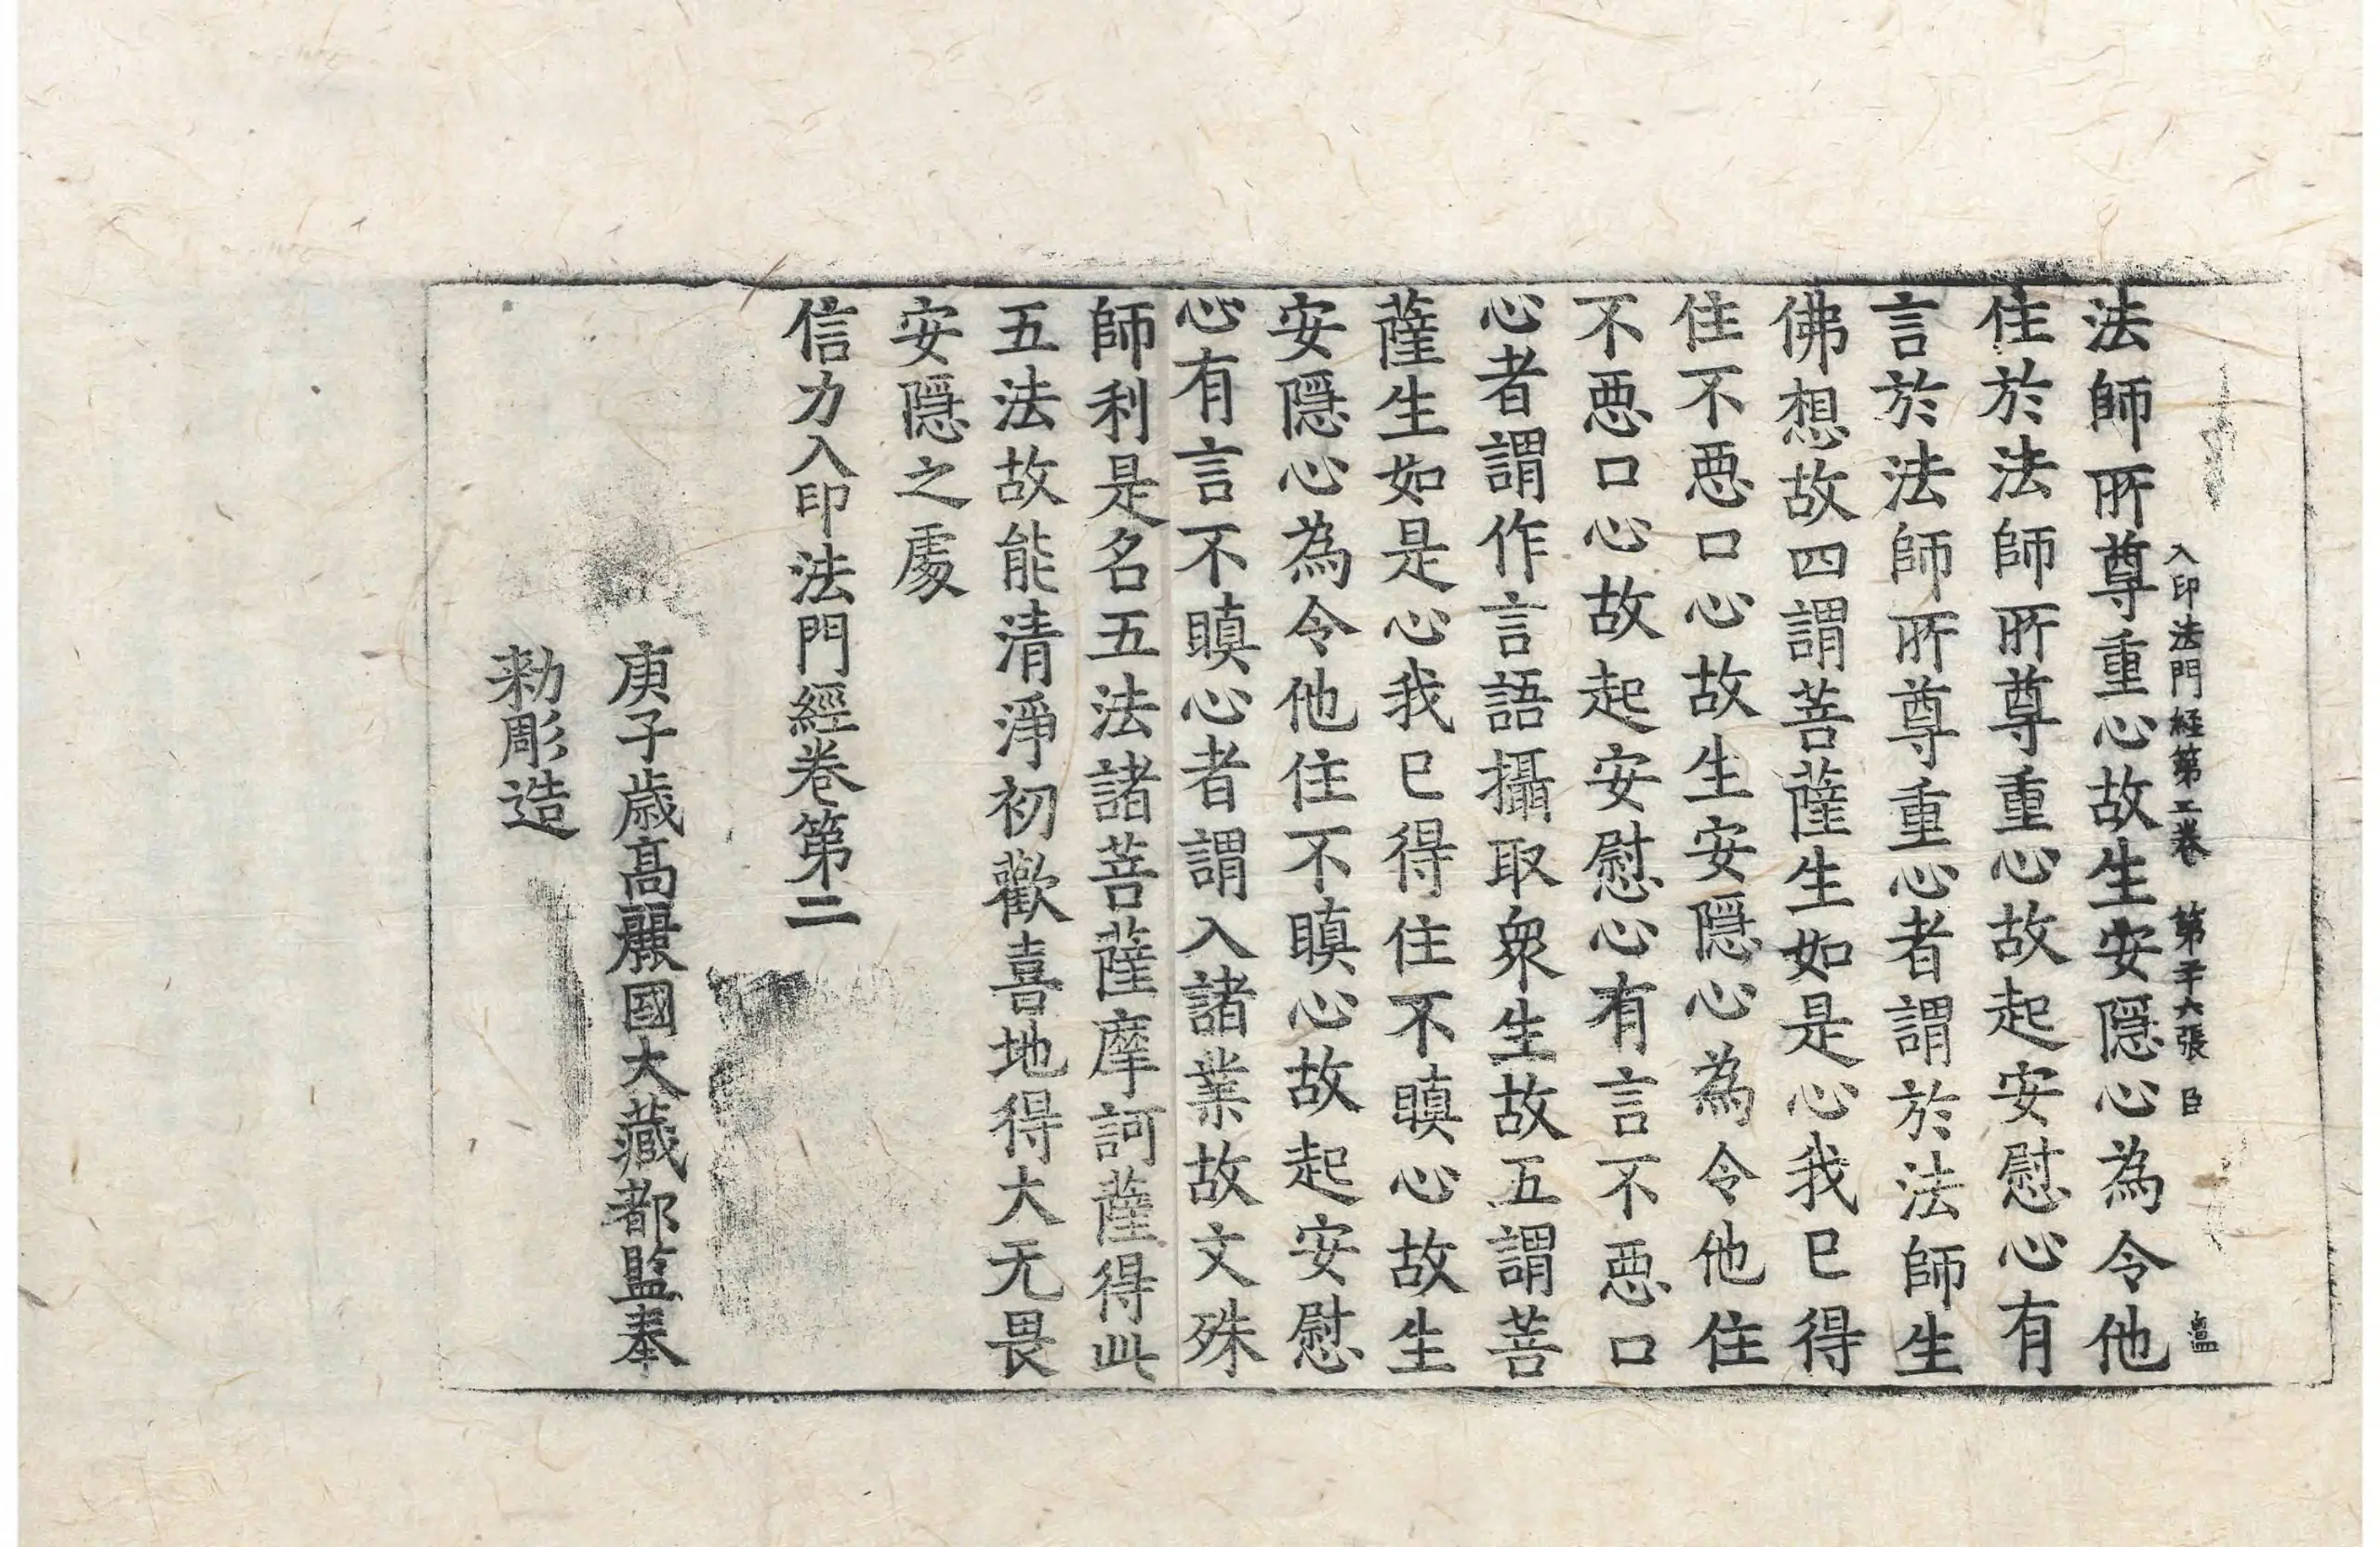 入印法門経第二卷 第二十六張 臣
法師所尊重心故生安隱心為令他
住於法師所尊重心故起安慰心有
言於法師所尊重心者謂於法師生
佛想故四謂菩薩生如是心我已得
住不惡口心故生安隱心為令他住
不惡口心故起安慰心有言不惡口
心者謂作言語攝取衆生故五謂菩
薩生如是心我已得住不瞋心故生
安隱心為令他住不瞋心故起安慰
心有言不瞋心者謂入諸業故文殊
師利是名五法諸菩薩摩訶薩得此
五法故能清淨初歡喜地得大无畏
安隱之處
信力入印法門經卷第二
庚子歳高麗國大藏都監奉
勑彫造